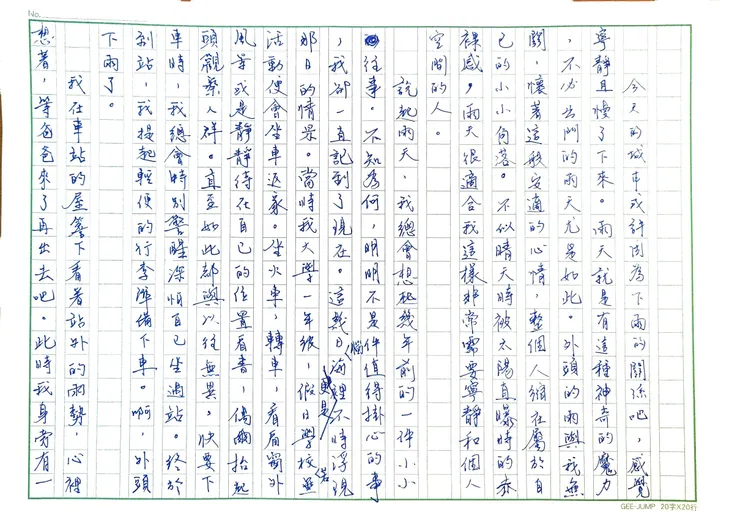 No.
今天的城市或許因為下雨的關係吧，感覺
寧靜且慢了下來。雨天就是有這種神奇的魔力
，不必出門的雨天尤是如此。外頭的雨與我無
關，懷著這般安適的心情，整個人縮在屬於自
己的小小角落。不似晴天時被太陽直曝時的赤
裸感，雨天很適合我這樣非常需要寧靜和個人
空間的人。
說起雨天，我總會想起幾年前的一件小小
往事。不知為何，明明不是件值得掛心的事
，我卻一直記到了現在。這幾日腦海裡更是不時浮現
那日的情景。當時我大學一年級，假日學校若無
活動便會坐車返家。坐火車，轉車，看看窗外
風景或是靜靜待在自己的位置看書，偶爾抬起
頭觀察人群。直至如此都與以往無異。快要下
車時，我總會特別警醒深怕自己坐過站。終於
到站，我提起輕便的行李準備下車。啊，外頭
下雨了。
我在車站的屋簷下看著站外的雨勢，心裡
想著，等爸爸來了再出去吧。此時我身旁有一
GEE-JUMP 20字X20行